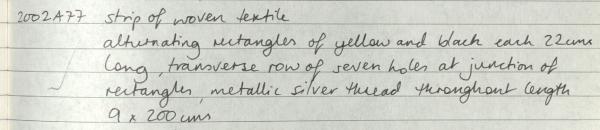 2002A77 strip of woven textile
alternating rectangles of yellow and black each 22cms
long, transverse row of seven holes at junction of
rectangles, metallic silver thread throughout length
9 x 200 cms